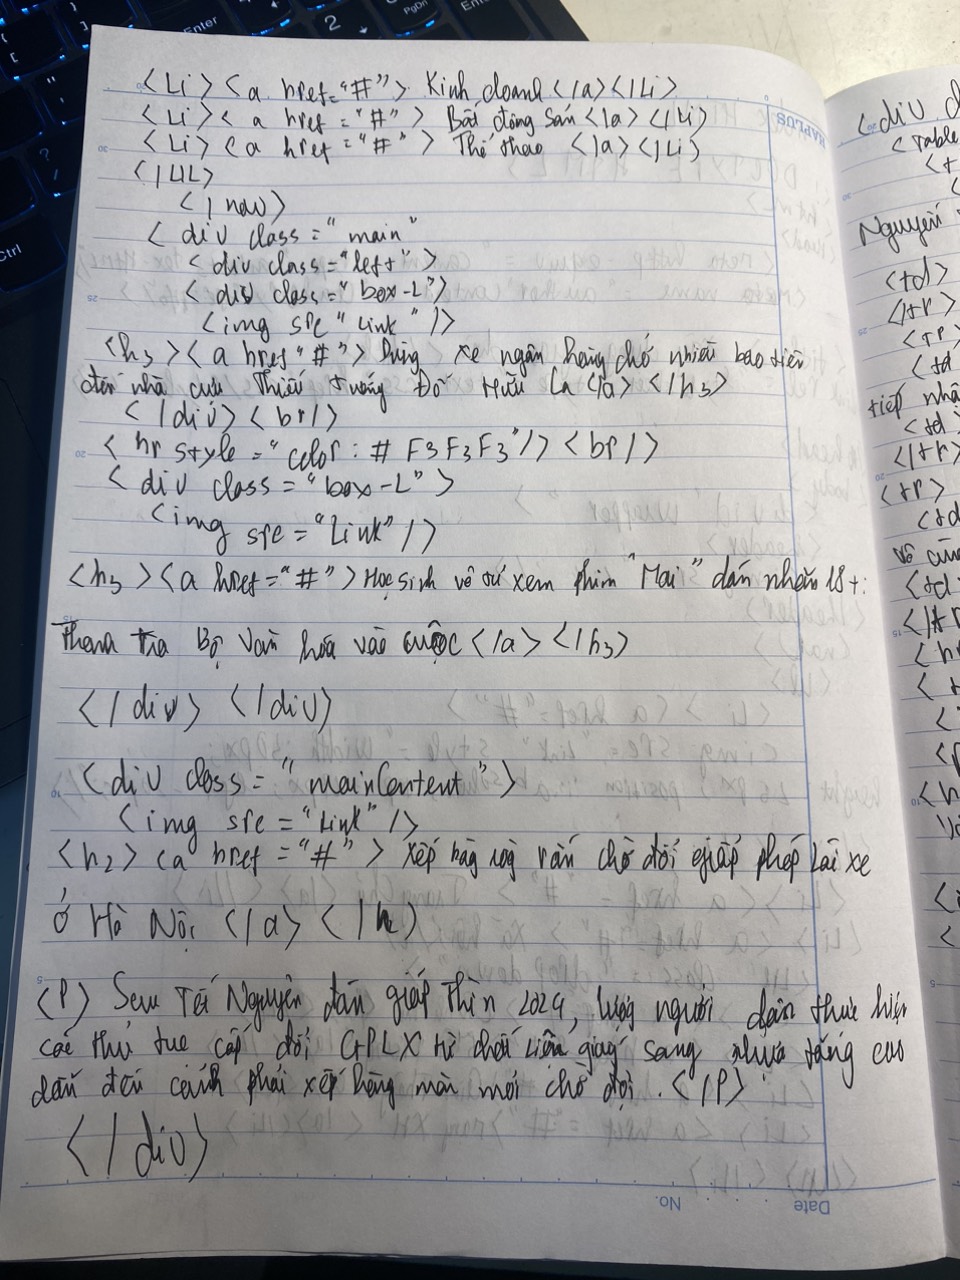 <Li><a href="#"> Kinh doanh</a></Li>
<Li><a href="#"> Bất động sản</a></Li>
<Li><a href="#"> Thể thao </a></Li>
</UL>
</nav>
<div class="main"
<div class="left">
<div class="box-L">
<img src "Link" />
<h3><a href "#"> Dùng xe ngân hàng chở nhiều bao tiền
đến nhà cựu Thiếu tướng Đỗ Hữu Ca</a></h3>
</div><br/>
<hr style="color:#F3F3F3"/><br/>
<div class="box-L">
<img src="Link"/>
<h3><a href="#">Học sinh về tứ xem phim "Mai" dán nhãn 18+:
Thanh tra Bộ Văn hóa vào cuộc</a></h3>
</div></div>
<div class="mainContent">
<img src="Link"/>
<h2><a href="#"> Xếp hàng rồng rắn chờ đổi giấp phép Lái xe
ở Hà Nội </a></h
<P> Sau Tết Nguyên đán giáp Thìn 2024, lượng người dân thực hiện
các thủ tục cấp đổi GPLX từ sang nhựa tăng cao
dẫn đến cảnh phải xếp hàng mòn mỏi chờ đợi.</P>
</div>
Date
No.
<div
<Table
Nguyễn
<td>
</tr>
<tr>
<td
tiếp nhậ
</tr>
<tr>
Enter
PgDn
Ctrl